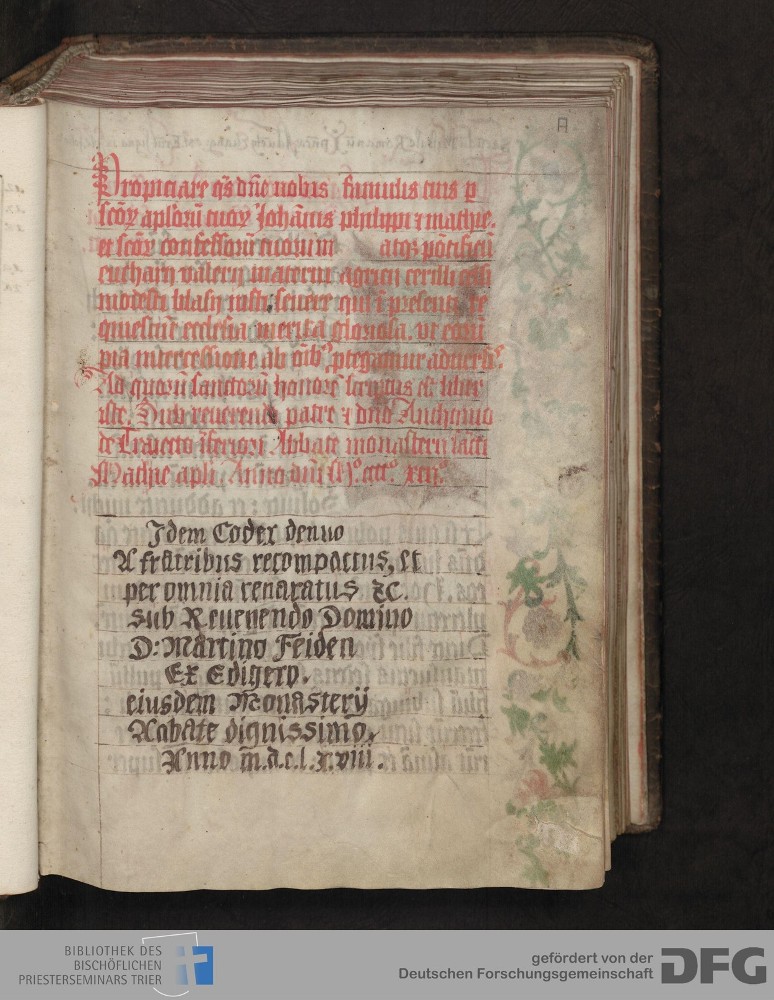 A
Propiciare q̄s dn̄e nobis famulis tuis ꝑ
sc̄oꝝ aplorū tuoꝝ Johānis philippi ⁊ mathie.
et sc̄oꝝ confessorū tuorum atqꝫ pōtificū
eucharij valerij materni agricij cirilli celsi
modesti blasij iusti seuere qui ī presenti
quiescūt ecclesia merita gloriosa. vt eorū
pia intercessione ab oīb⁹ ꝓtegamur aduersis.
Ad quorū sanctorū honorē scriptus est liber
iste. Sub reuerendo patre ⁊ dn̄o Anthonio
de Traiecto īferiori Abbate monasterii sācti
Mathie apli. Anno dn̄i Mº cccº xcijº
Idem Codex denuo
A fratribus recompactus, et
per omnia renaratus ꝛc.
sub Reuerendo Domino
D: Martino Feiden
Ex Edigero.
eiusdem Monasterij
Aabate dignissimo,
Anno m.d.c.l.x.viii.
BIBLIOTHEK DES
BISCHÖFLICHEN
PRIESTERSEMINARS TRIER
gefördert von der
Deutschen Forschungsgemeinschaft DFG